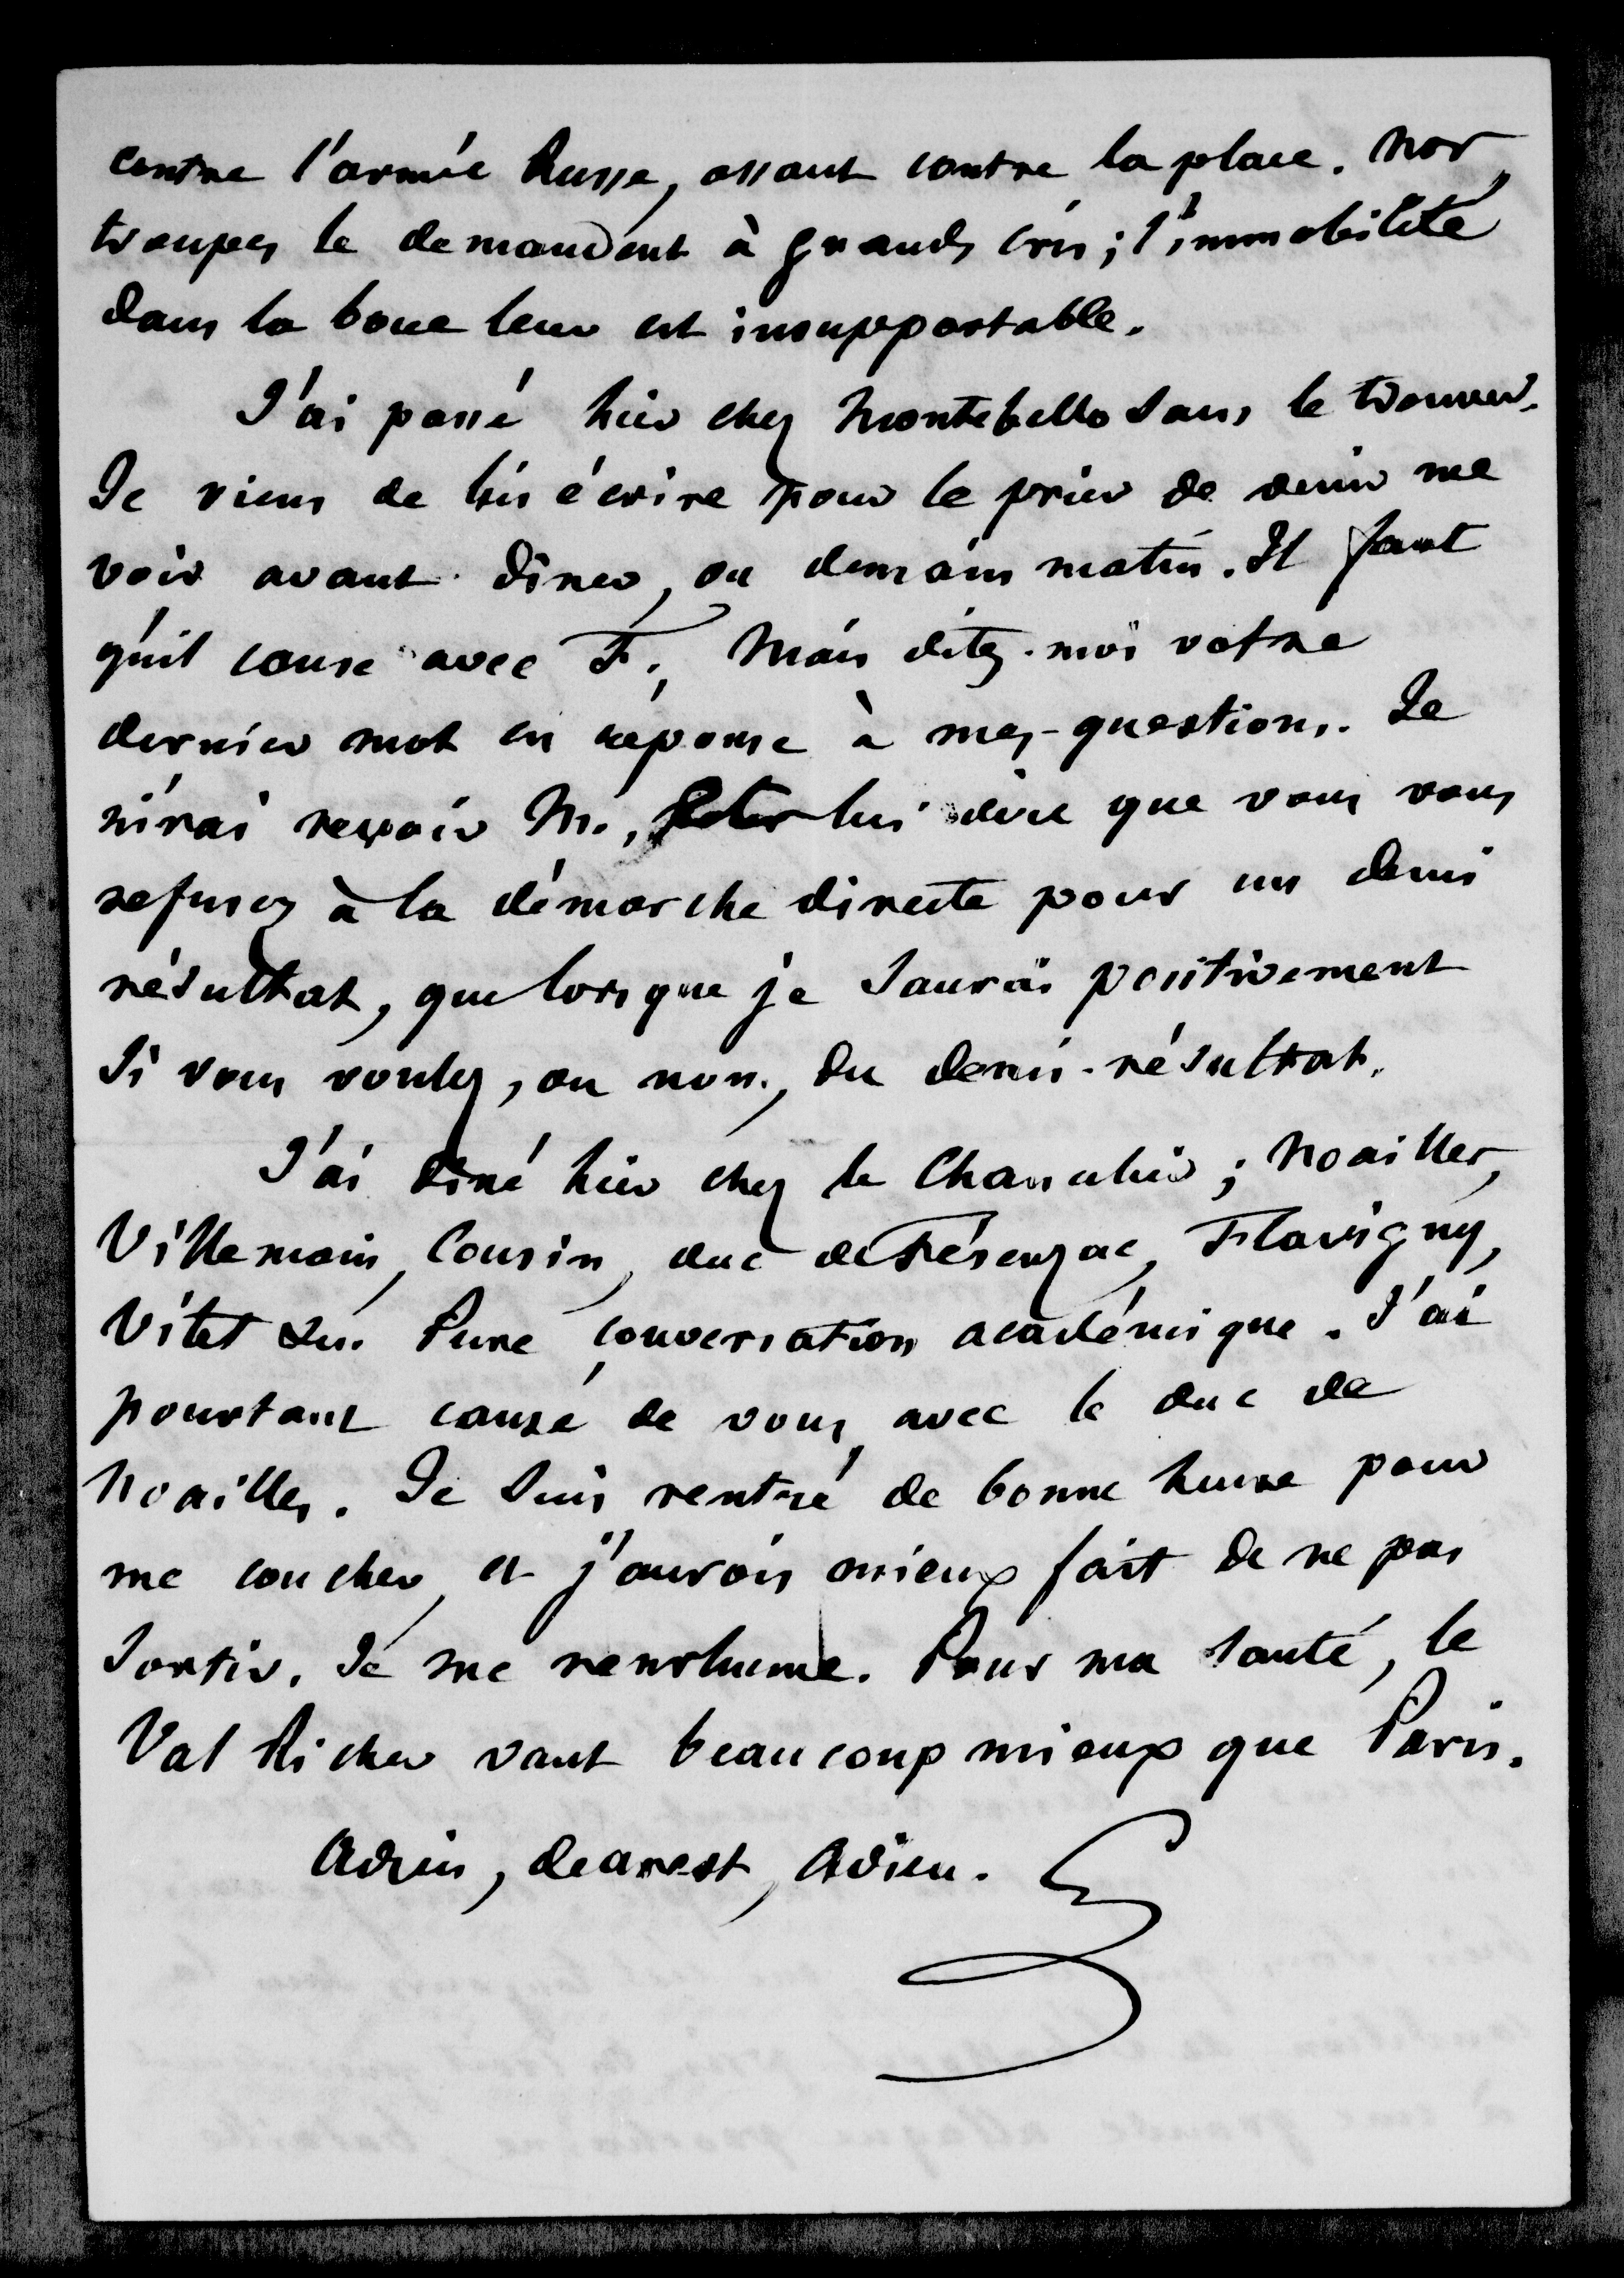 contre l'armée Russe, assaut contre la place. Nos
troupes le demandent à grands cris ; l'immobilité
dans la boue leur est insupportable.
J'ai passé hier chez Montebello sans le trouver.
Je viens de lui écrire pour le prier de venir me
voir avant diner, ou demain matin. Il faut
qu'il cause avec F. Mais dites-moi votre
dernier mot en réponse à mes questions. Je
n'irai revoir M., lui dire que vous vous
refusez à la démarche directe pour un demi
résultat, que lorsque je saurai positivement
si vous voulez, ou non, du demi-résultat.
J'ai diné hier chez le Chancelier ; Noailles,
Villemain, Cousin, duc de Fésenzac, Flavigny,
Vitet &a. Pure conversation académique. J'ai
pourtant causé de vous avec le duc de
Noailles. Je suis rentré de bonne heure pour
me coucher, et j'aurois mieux fait de ne pas
sortir. Je me renrhume. Pour ma santé, le
Val Richer vaut beaucoup mieux que Paris.
Adieu, dearest, Adieu.